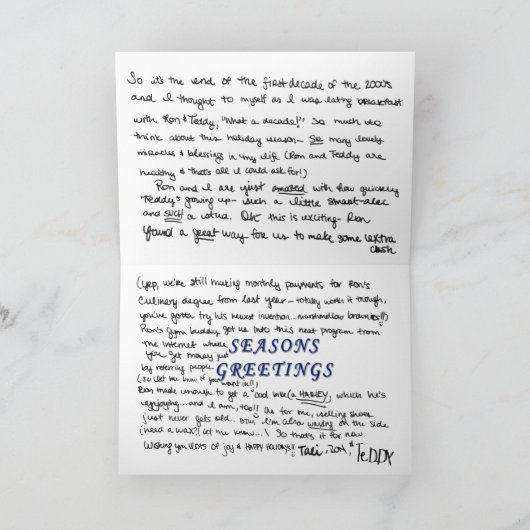 So it's the end of the first decade of the 2000's
and I thought to myself as I was eating breakfast
with Ron & Teddy, "What a decade!" So much to
think about this holiday season - so many lovely
miracles & blessings in my life (Ron and Teddy are
healthy & that's all I could ask for!)
Ron and I are just amazed with how quickly
Teddy's growing up - such a little smart-alec
and SUCH a Oh this is exciting - Ron
found a great way for us to make some extra
cash
(yep, we're still making monthly payments for Ron's
Culinary degree from last year - totally worth it though,
you've gotta try his newest invention... marshmallow brownies!!)
Ron's gym buddy got us into this neat program from
the internet where
you get money just
by referring people
(so let me know if you want in!!)
SEASONS
GREETINGS
Ron made enough to get a bike (a HARLEY, which he's
enjoying... and I am, too!! As for me, selling shoes
just never gets old. I'm also waxing on the side
(need a wax?! Let me know...) So that's it for now.
Wishing you LOTS of joy & HAPPY HOLIDAYS!! Tali, Ron, & TeDDY